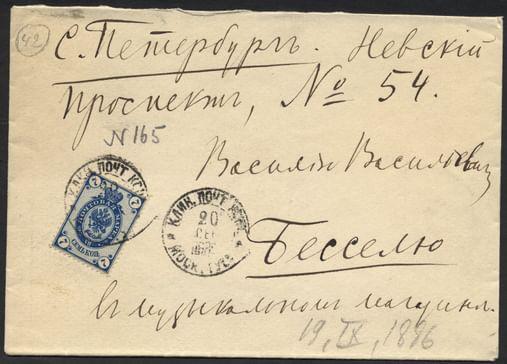 42
С. Петербургъ. Невскій
Проспектъ, № 54.
N 165
Василію Васильевичу
Бесселю
въ музыкальномъ магазинѣ.
19, IX, 1886
КЛИН. ПОЧТ.
20
СЕН
МОСК. ГУБ.
7
7
ПОЧТОВАЯ МАРКА
7
СЕМЬ КОП.
7